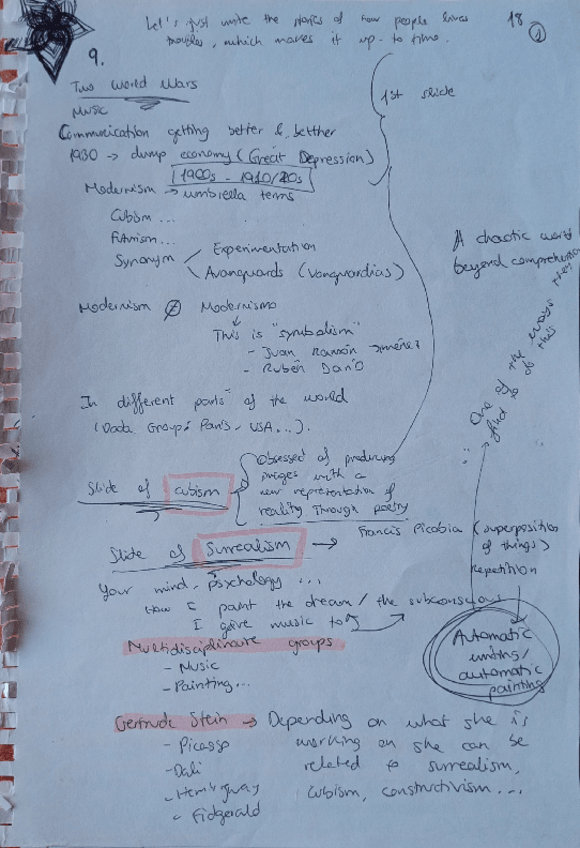 Let's just write the stories of how people lives
troubles, which makes it up-to time.
18
1
9.
Two World Wars
Music
Communication getting better & betther
1930 → dump economy (Great Depression)
1900s - 1910/20s
1st slide
Modernism → umbrella terms
Cubism ...
Futurism ...
Synonym
Experimentation
Avanguards (Vanguardias)
A chaotic world
beyond comprehension
Modernism ≠ Modernismo
This is "symbolism"
- Juan Ramón Jiménez
- Rubén Darío
One of the ways they
find to do this
In different parts of the world
(Dada Group: Paris, USA...).
Slide of cubism
Obsessed of producing
images with a
new representation of
reality through poetry
Slide of Surrealism →
Francis Picabia (superposition
of things)
Repetition
Your mind, psychology ...
How I paint the dream / the subconscious
I give music to
Automatic
writing/
automatic
painting
Multidisciplinare groups
- Music
- Painting...
Gertrude Stein → Depending on what she is
- Picasso working on she can be
- Dalí related to surrealism,
- Hemingway cubism, constructivism...
- Fidgerald